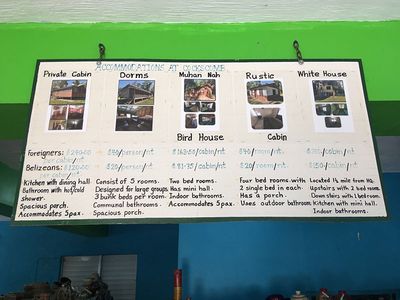 ACCOMMODATIONS AT COCKSCOMB
Private Cabin Dorms Muhan Nah Rustic White House
Bird House Cabin
Foreigners: /person/nt. /cabin/nt /room/nt. /cabin/nt
per cabin/nt
Belizeans: /person/nt. $81.75/cabin/nt $20/room/nt. $150/cabin/nt
Kitchen with dining hall
Bathroom with hot/cold
shower.
Spacious porch.
Accommodates 5pax.
Consist of 5 rooms.
Designed for large groups.
3 bunk beds per room.
Communal bathrooms.
Spacious porch.
Two bed rooms.
Has mini hall.
Indoor bathrooms.
Accommodates 5pax.
Four bed rooms with
2 single bed in each.
Has a porch.
Uses outdoor bathroom
Located ¼ mile from HQ.
Upstairs with 2 bed room
Down stairs with 1 bed room.
Kitchen with mini hall.
Indoor bathrooms.